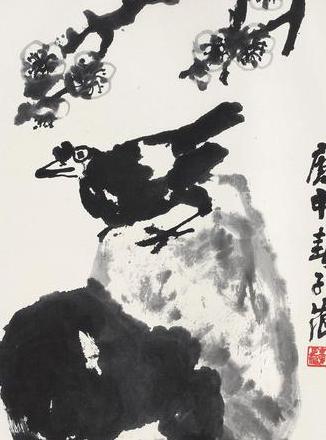 庚申春子范